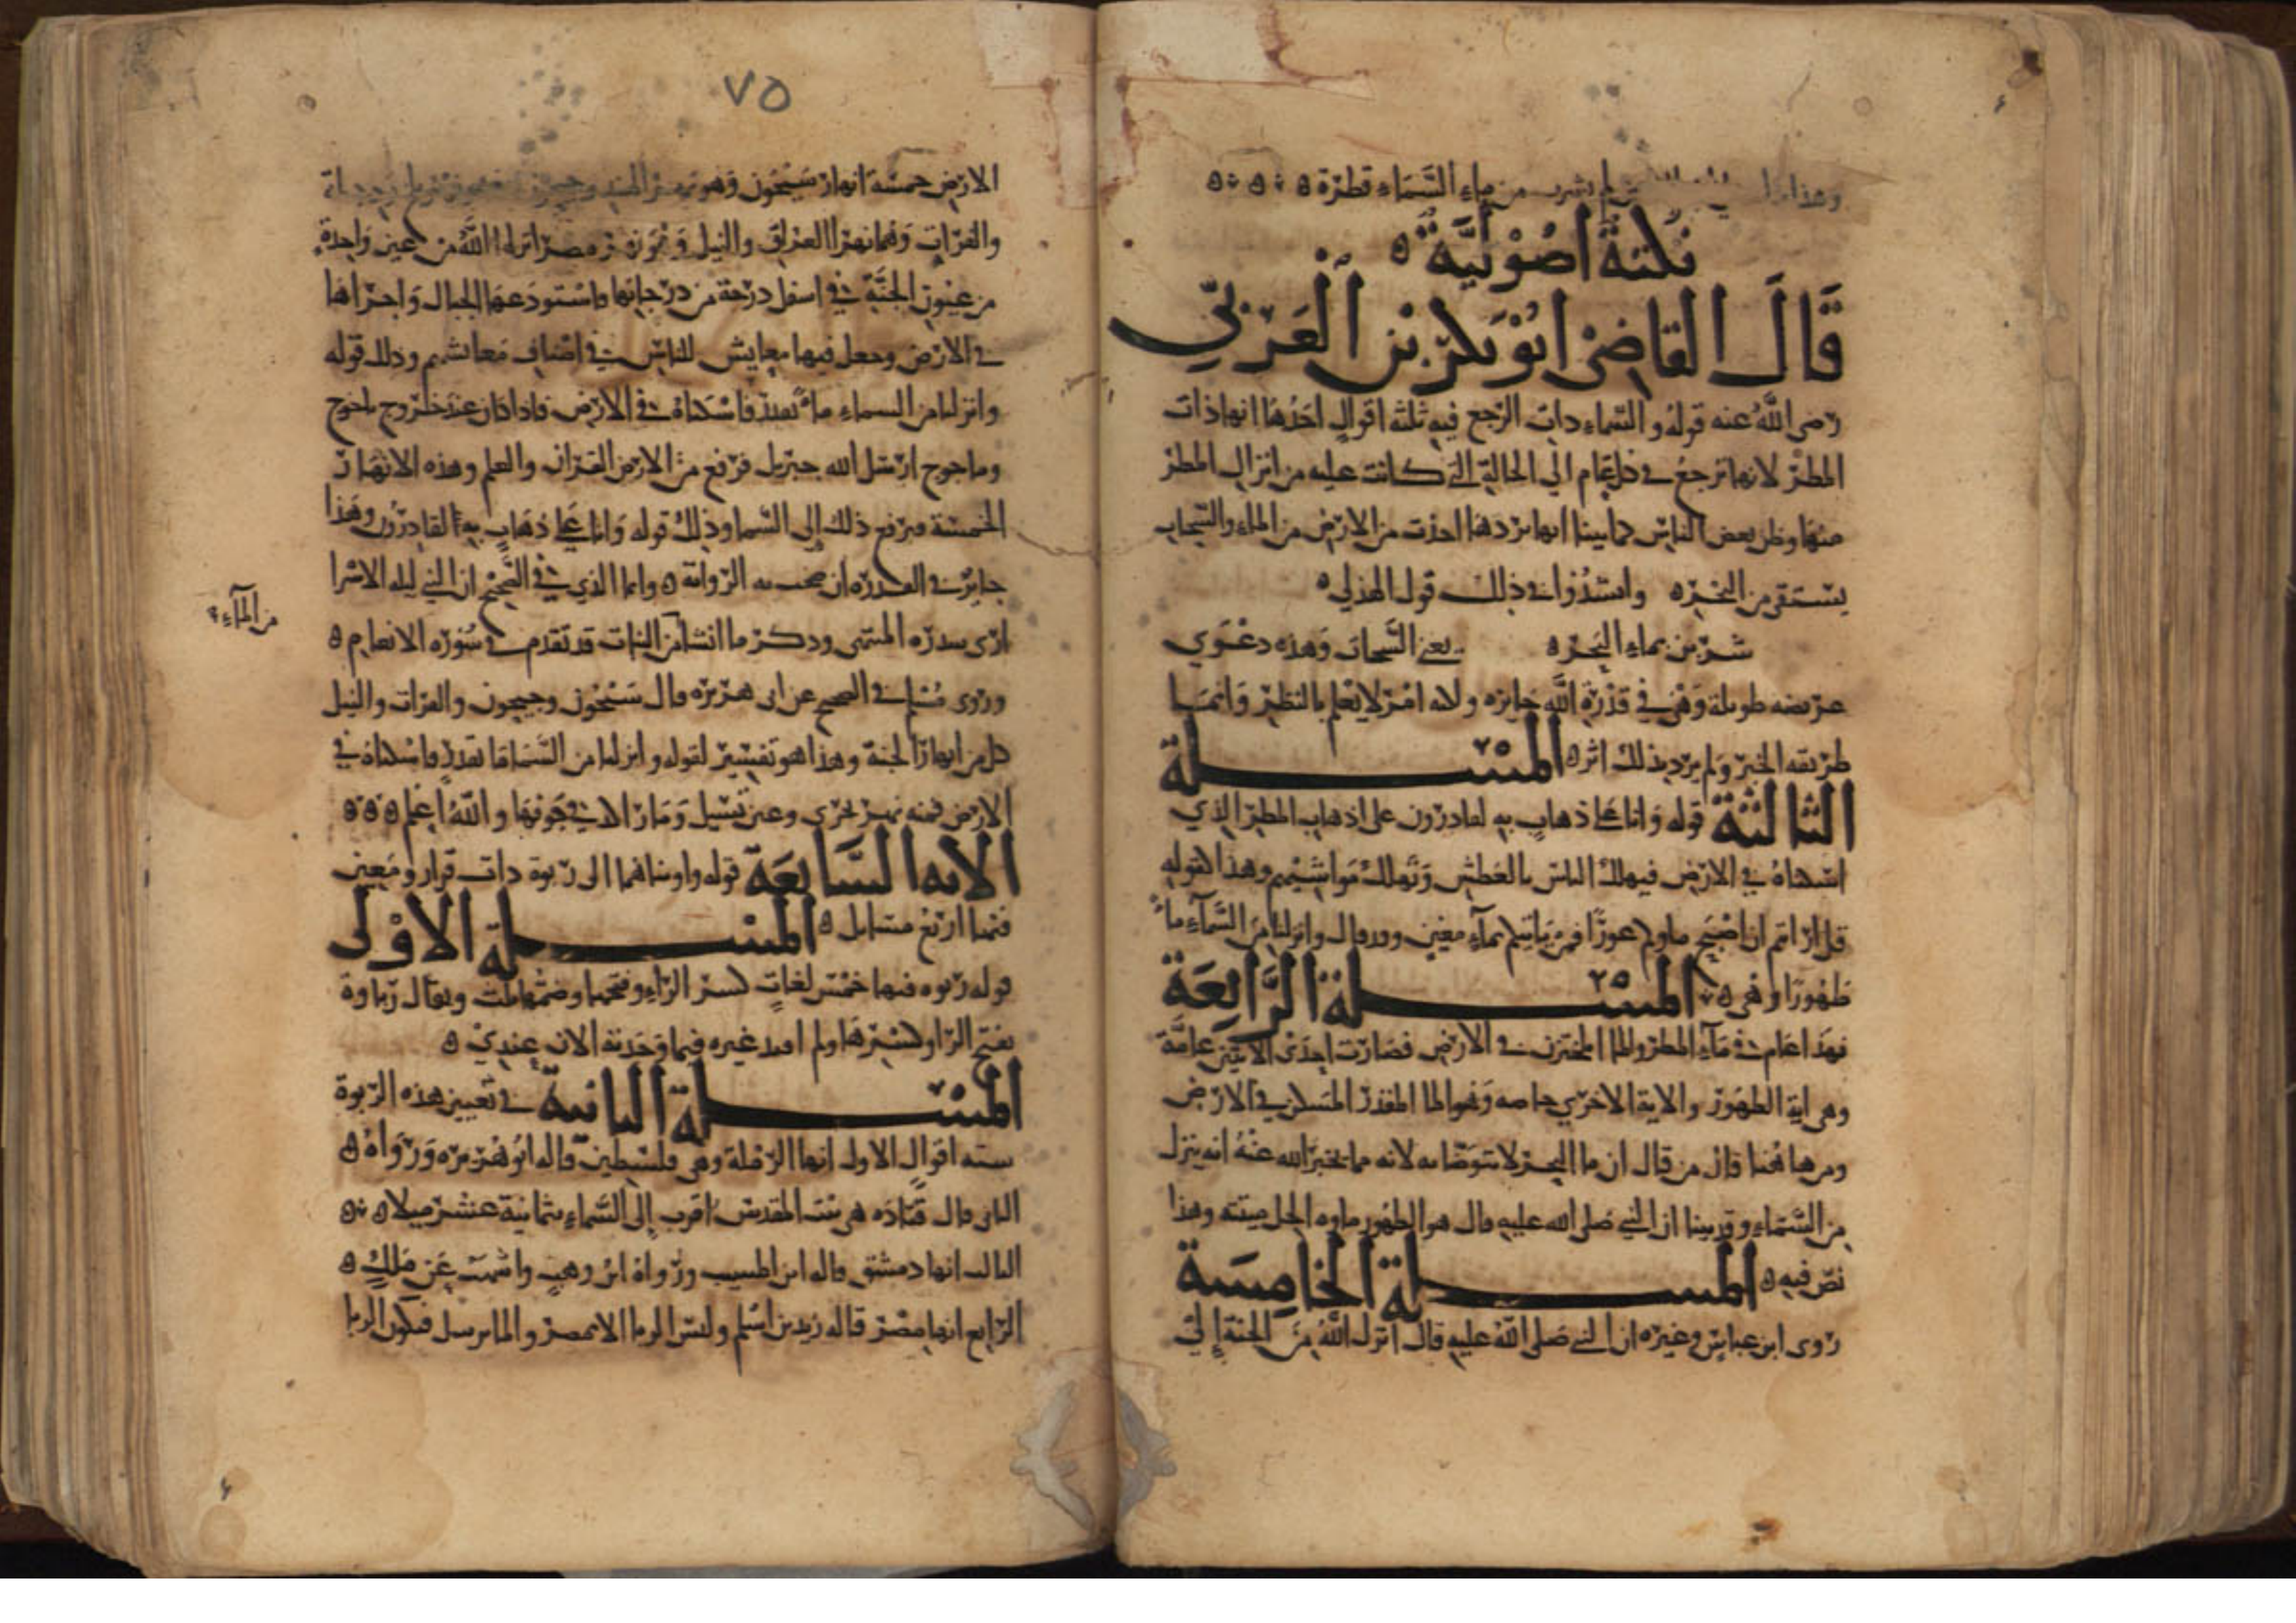 وهذا لم يشرب من ماء السماء قطرة
نكتة اصولية
قال القاضي ابو بكر بن العربي
رضي الله عنه قوله والسماء ذات الرجع فيه ثلثة اقوال احدها انها ذات
المطر لانها ترجع في كل عام الى الحالة التي كانت عليه من انزال المطر
منها وظن بعض الناس كما بينا انها ترد ما اخذت من الارض من الماء والسحاب
يستقي من البحر وانشدوا في ذلك قول الهذلي
شربن بماء البحر يعني السحاب وهذه دعوي
عريضه طويلة وهي في قدرة الله جايزه ولكنه امر لا يعلم بالنظر وانما
طريقه الخبر ولم يرد بذلك اثر المسلة
الثالثة قوله وانا على ذهاب به لقادرون على اذهاب المطر الذي
اسكناه في الارض فيهلك الناس بالعطش وتهلك مواشيهم وهذا كقوله
قل ارايتم ان اصبح ماوكم غورا فمن ياتيكم بماء معين وقد قال وانزلنا من السماء ماء
طهورا وهي المسلة الرابعة
فهذا عام في ماء المطر والماء المختزن في الارض فصارت احدى الايتين عامة
وهي اية الطهور والاية الاخري خاصه وهو الما المقدر المسكن في الارض
ومن هاهنا قال من قال ان ما البحر لا يتوضا به لانه مما يخبر الله عنه انه ينزل
من السماء وقد بينا ان النبي صلى الله عليه قال هو الطهور ماوه الحل ميتته وهذا
نص فيه المسلة الخامسة
روى ابن عباس وغيره ان النبي صلى الله عليه قال انزل الله من الجنة إلى
٧٥
الارض خمسة انهار سيحون وهو نهر الهند وجيحون وهو نهر بلخ ودجلة
والفرات وهما نهرا العراق والنيل وهو نهر مصر انزلها الله من عين واحدة
من عيون الجنة في اسفل درجة من درجاتها واستودعها الجبال واجراها
في الارض وجعل فيها معايش للناس في اصناف معايشهم وذلك قوله
وانزلنا من السماء ماء بقدر فاسكناه في الارض فاذا كان عند خروج ياجوج
وماجوج ارسل الله جبريل فرفع من الارض القران والعلم وهذه الانهار
الخمسة فيرفع ذلك إلى السما وذلك قوله وانا على ذهاب به لقادرون وهذا
جايز في القدرة ان صحت به الرواية واما الذي في الصحيح ان النبي ليله الاسرا
اري سدره المنتهى وذكر ما انشا من النبات قد تقدم في سوره الانعام
من الماء
وروى مسلم في الصحيح عن ابي هريره قال سيحون وجيحون والفرات والنيل
كل من انهار الجنة وهذا هو تفسير لقوله وانزلنا من السما ماء بقدر فاسكناه في
الارض فمنه نهر يجري وعين تسيل وما راكد في جوفها والله اعلم
الايه السابعة قوله واويناهما الى ربوة ذات قرار ومعين
فيها اربع مسايل المسلة الاولى
قوله ربوه فيها خمس لغات كسر الراء وفتحها وضمها ثلث ويقال رباوة
بفتح الرا وكسرها ولم اقيد غيره فيما وجدته الان عندي
المسلة الثانية في تعيين هذه الربوة
سته اقوال الاول انها الرملة وهي فلسطين قاله ابو هريره ورواه
الثاني قال قتاده هي بيت المقدس اقرب إلى السماء بثمانية عشر ميلا
الثالث انها دمشق قاله ابن المسيب ورواه ابن وهب واشهب عن ملك
الرابع انها مصر قاله زيد بن اسلم وليس الربا الا بمصر والما يرسل فتكون الربا